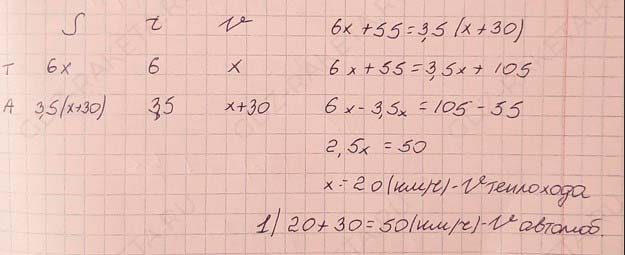 S t V 6x+55=3,5(x+30)
Т 6x 6 x 6x+55=3,5x+105
А 3,5(x+30) 3,5 x+30 6x-3,5x=105-55
2,5x=50
x=20(км/ч)-V теплохода
1) 20+30=50(км/ч)-V автомоб.